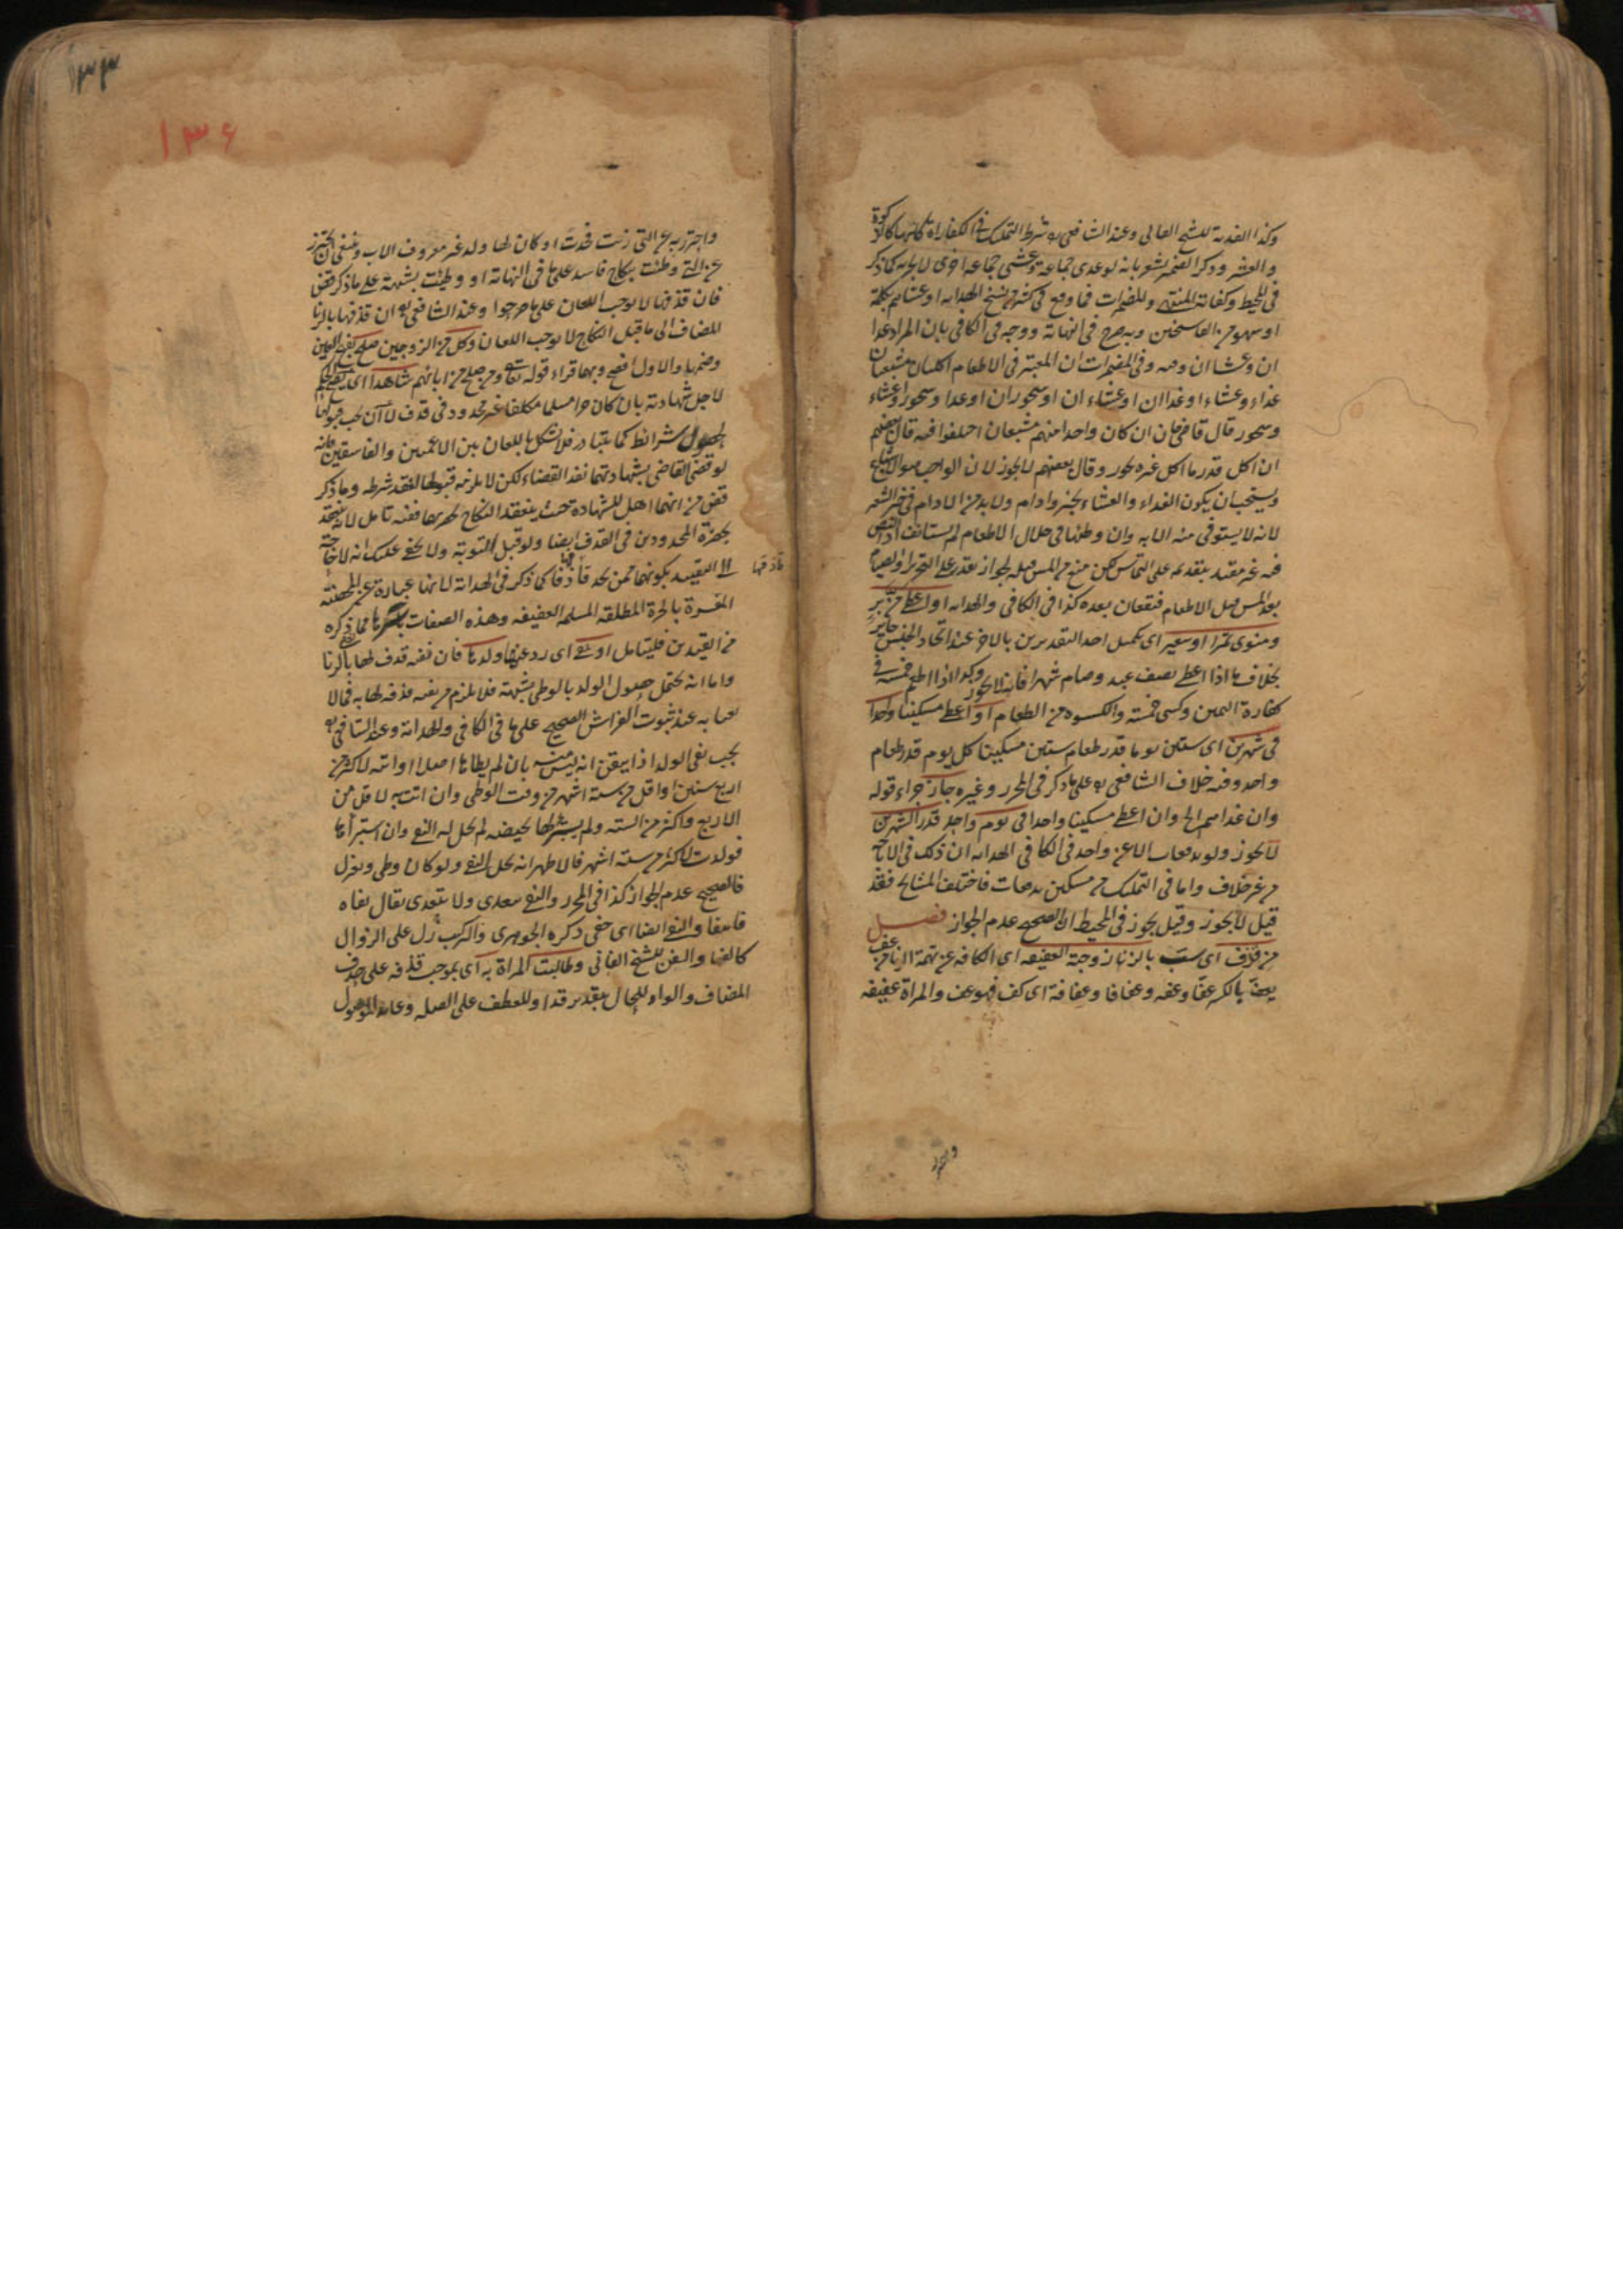 وكذا الفدية للشيخ الفاني وعند الشافعي يشترط التمليك في الكفارة كلها كالزكوة
والعشر وذكر الضمير مشعر بانه لو غدى جماعة وعشى جماعة اخرى لا يجزيه كما ذكر
في المحيط وكفاية المنتهى والمضمرات فما وقع في كثير من نسخ الهداية او عشاهم بكلمة
او سهو من الناسخين وبه صرح في النهاية ووجه في الكافي بان المراد غدا
ان وعشا ان وفيه وفي المضمرات ان المعتبر في الاطعام اكلتان مشبعتان
غداء وعشاء او غداان او عشاء ان او سحوران او غدا وسحور او عشاء
وسحور قال قاضي خان ان كان واحدا منهم شبعان اختلفوا فيه قال بعضهم
ان اكل قدر ما اكل غيره يجوز وقال بعضهم لا يجوز لان الواجب هو الاشباع
ويستحب ان يكون الغداء والعشاء بخبز وادام ولا بد من الادام في خبز الشعير
لانه لا يستوفي منه الا به وان وطئها في خلال الاطعام لم يستانف اذ النص
فيه غير مقيد بتقديمه على التماس لكن منع من المس قبله لجواز يقدر على التحرير او الصيام
بعد المس قبل الاطعام فيقعان بعده كذا في الكافي والهداية او اعطى من بر
ومنوي تمرا او شعير اي تكميل احد التقديرين بالاخر عند اتحاد الجنس جايز
بخلاف ما اذا اعطى نصف عبد وصام شهرا فانه لا يجوز وكذا اذا اطعم خمسة في
كفارة اليمين وكسى خمسة والكسوة من الطعام او اعطى مسكينا واحدا
في شهرين اي ستين يوما قدر طعام ستين مسكينا كل يوم قدر طعام
واحد وفيه خلاف الشافعي على ما ذكر في المحرر وغيره جاز جزاء قوله
وان غداهم الخ وان اعطى مسكينا واحدا في يوم واحد قدر الشهرين
لا يجوز ولو بدفعات الا عن واحد في الكافي الهداية ان ذلك في الاباحة
من غير خلاف واما في التمليك من مسكين بدفعات فاختلف المشايخ فقد
قيل لا يجوز وقيل يجوز في المحيط ان الصحيح عدم الجواز فصل
من قذف اي سب بالزنا زوجته العفيفة اي الكافة عن تهمة الزنا من عف
يعف بالكسر عفا وعفة وعفافا وعفافة اي كف فهو عف والمراة عفيفة
واحترز
١٣٣
١٣۶
واحترز به عن التي زنت فحدت او كان لها ولد غير معروف الاب وينبغي ان يحترز
عن التي وطئت بنكاح فاسد على ما في النهاية او وطئت بشبهة على ما ذكر
فان قذفها لا يوجب اللعان على ما صرحوا وعند الشافعي ان قذفها بالزنا
المضاف الى ما قبل النكاح لا يوجب اللعان وكل من الزوجين صلح بفتح العين
وضمها والاول افصح وبها قراء قوله تعالى ومن صلح من ابائهم شاهدا اي
لاجل شهادته بان كان حرا مسلما مكلفا غير محدود في قذف لا ان يجب قبولها
لحصول شرائط كما يتبادر فلا يشكل باللعان بين الاعميين والفاسقين فانه
لو قضى القاضي بشهادتهما نفذ القضاء لكن لا يلزمه قبولها لفقد شرطه وما ذكر
من انهما اهل للشهادة حيث ينعقد النكاح بحضرتهما ففيه تامل لانه ينعقد
بحضرة المحدودين في القذف ايضا ولو قبل التوبة ولا يخفى عليك انه لا حاجة
الى التقييد بكونهما ممن يحد قاذفها كما ذكر في الهداية لانها عبارة عن المحصنة
قاذفها
المفسرة بالحرة المطلقة المسلمة العفيفة وهذه الصفات باسرها مما ذكره
من القيدين فليتامل او نفى اي رد عن ولدها فان نفيه قذف لها بالزنا
واما انه يحتمل حصول الولد بالوطي بشبهة فلا يلزم من نفيه قذفه لها به فمما لا
يعبا به عند ثبوت الفراش الصحيح على ما في الكافي والهداية وعند الشافعي
يجب نفي الولد اذا تيقن انه ليس منه بان لم يطاها اصلا او اتته لاكثر من
اربع سنين او اقل من ستة اشهر من وقت الوطي وان اتت به لاقل من
الاربع واكثر من الستة ولم يستبرئها بحيضة لم يحل له النفي وان استبرأها
فولدت لاكثر من ستة اشهر فالاظهر انه يحل النفي ولو كان وطي وعزل
فالصحيح عدم الجواز كذا في المحرر والنفي يتعدى ولا يتعدى يقال نفاه
فانتفا والنفي ايضا اي خفى ذكره الجوهري والتركيب دل على الزوال
كالفنا والفن للشيخ الفاني وطالبت المراة به اي بموجب قذفه على حذف
المضاف والواو للحال بتقدير قد او للعطف على الصلة وعائد الموصول